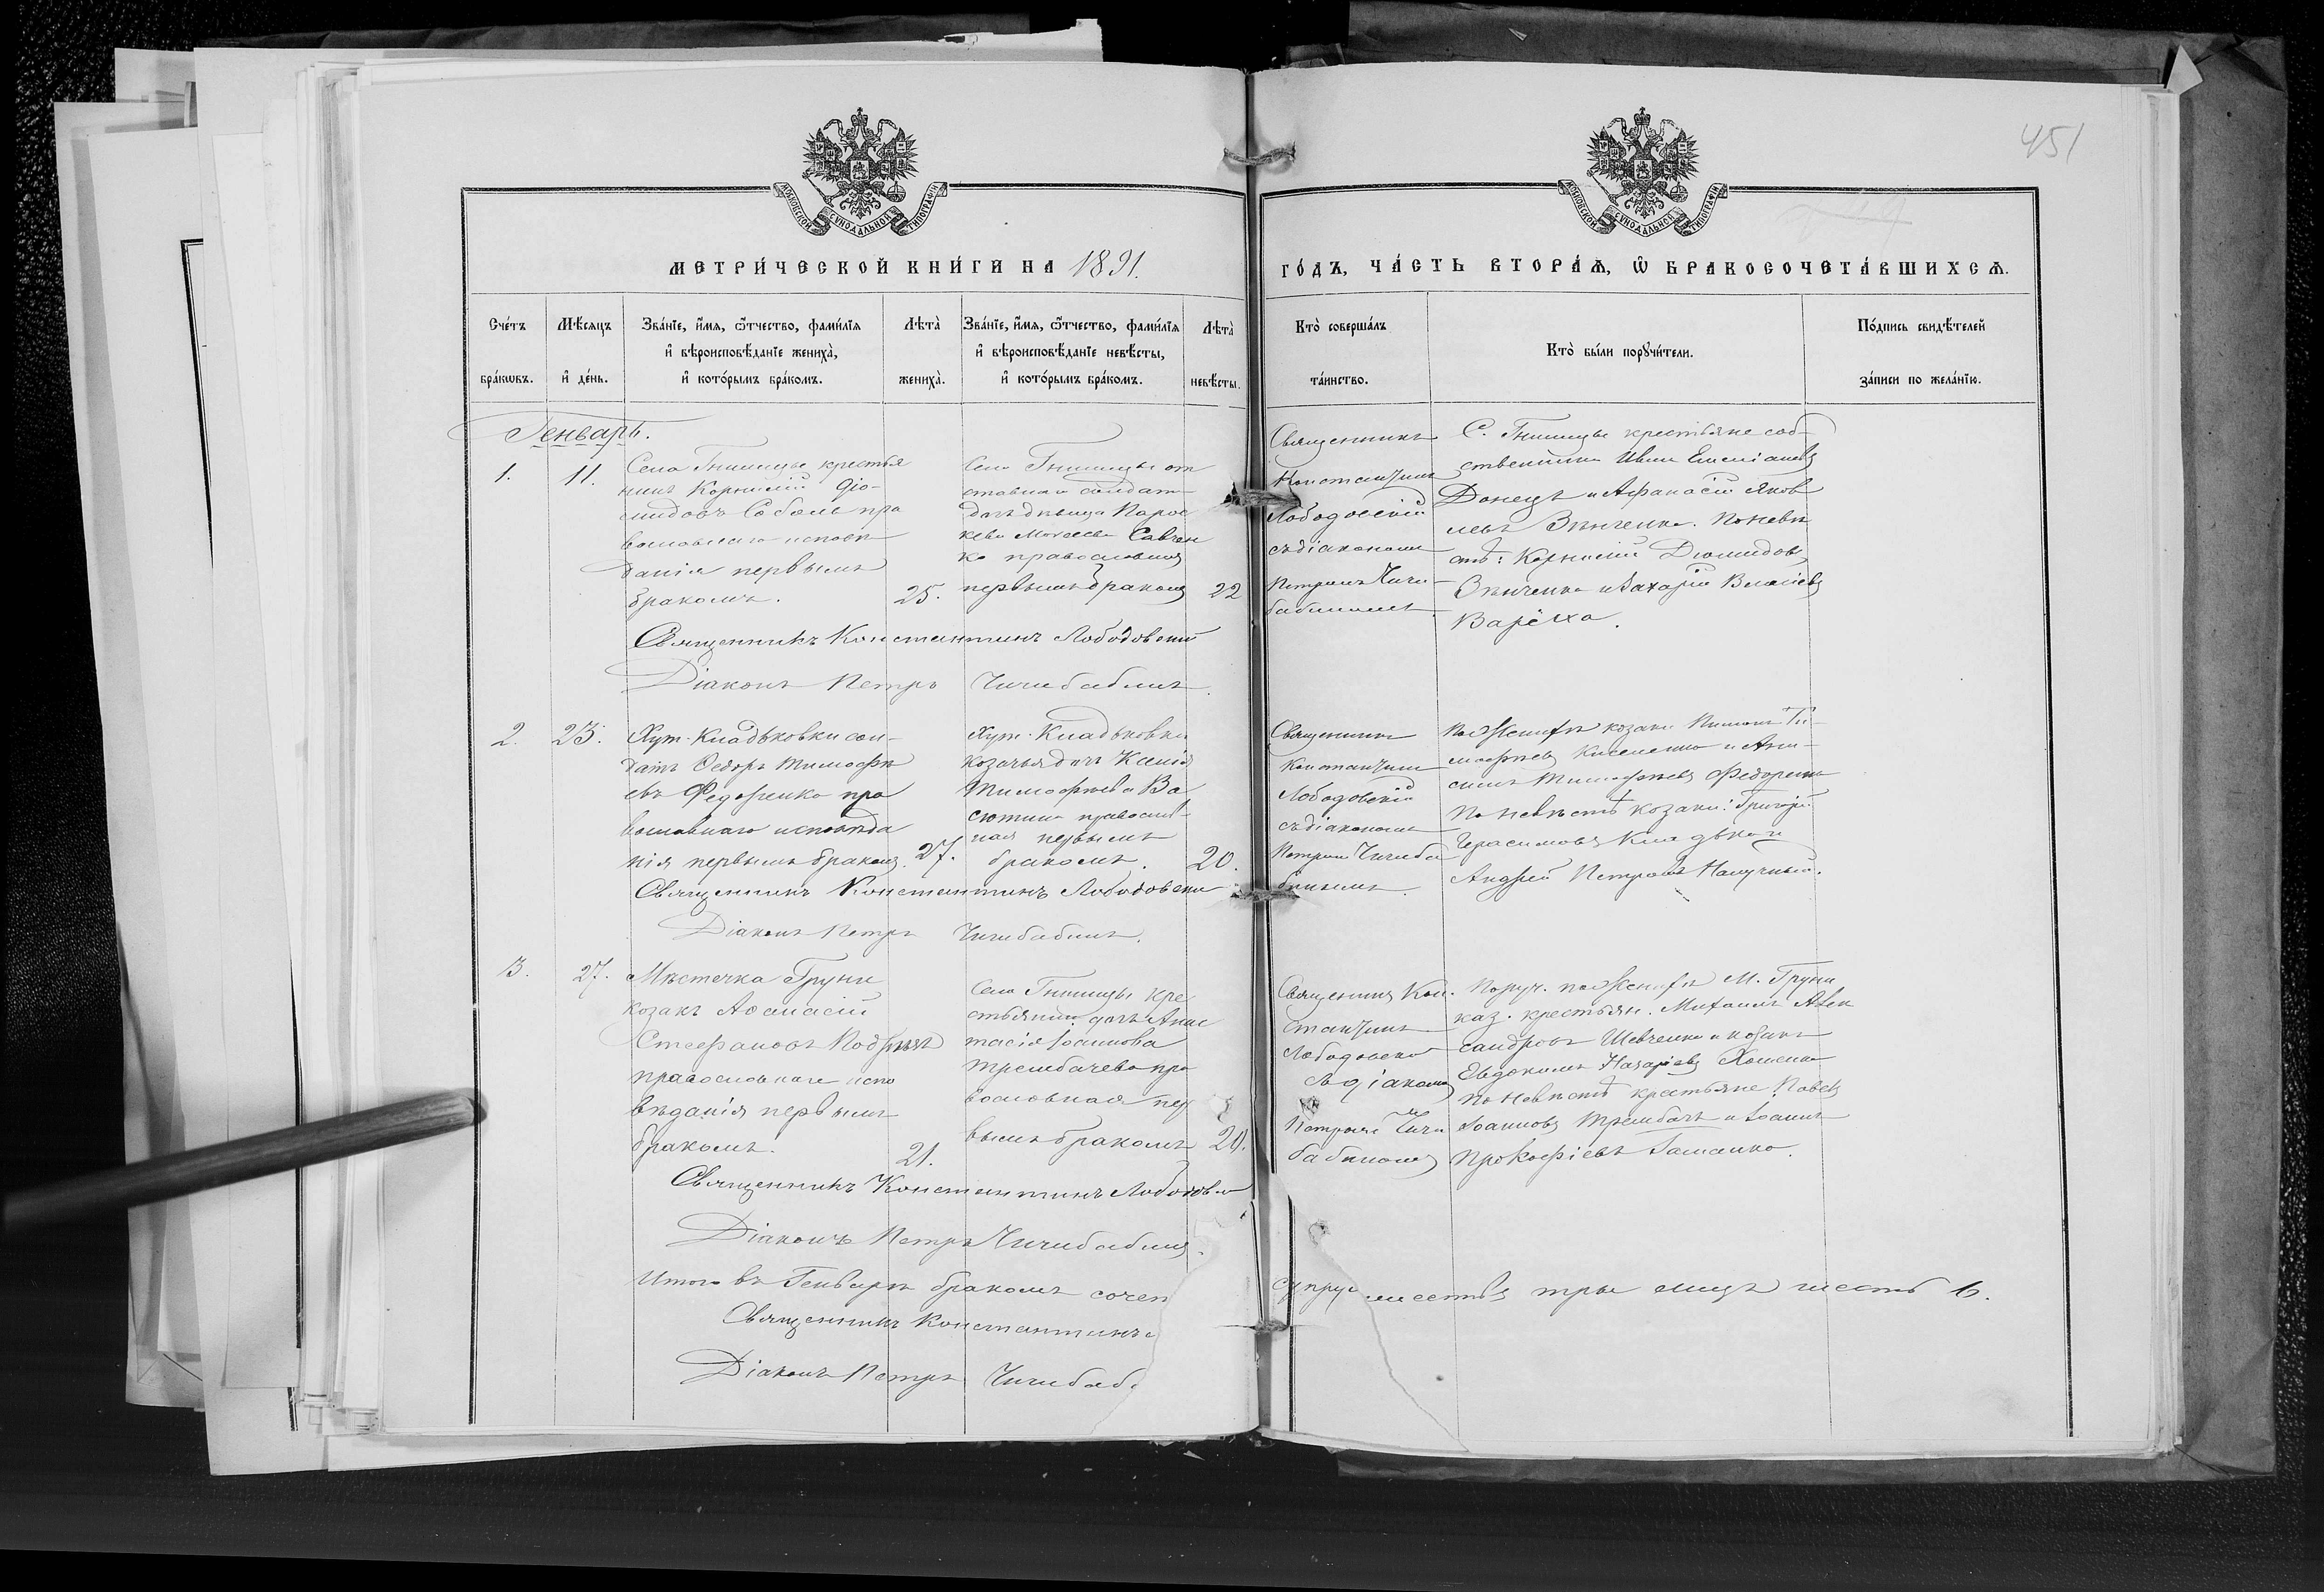 451
МОСКОВСКОЙ СѴНОДАЛЬНОЙ ТИПОГРАФІИ
МОСКОВСКОЙ СѴНОДАЛЬНОЙ ТИПОГРАФІИ
МЕТРИ́ЧЕСКОЙ КНИ́ГИ НА 1891.
ГО́ДЪ, ЧА́СТЬ ВТОРА́Ѧ, Ѡ҆ БРАКОСОЧЕТА́ВШИХСѦ.
Сче́тъ бра́кѡвъ.
Мѣ́сяцъ и҆ де́нь.
Зва́нїе, и҆́мѧ, ѻ҆́тчество, фами́лїѧ
и҆ вѣроисповѣ́данїе жениха̀,
и҆ кото́рымъ бра́комъ.
Лѣта̀ жениха̀.
Зва́нїе, и҆́мѧ, ѻ҆́тчество, фами́лїѧ
и҆ вѣроисповѣ́данїе невѣ́сты,
и҆ кото́рымъ бра́комъ.
Лѣта̀ невѣ́сты.
Кто̀ соверша́лъ та́инство.
Кто̀ бы́ли порꙋчи́тели.
По́дпись свидѣ́телей за́писи по жела́нїю.
Генварь.
1.
11.
Села Гнилицы крестья
нинъ Корнилій Діо-
мидовъ Соболь пра
вославнаго исповѣ
данія первымъ
бракомъ.
25.
Села Гнилицы от
ставнаго солдат
дочь дѣвица Парас
кева Моисеева Савчен
ко православная
первымъ бракомъ
22
Священникъ
Константинъ
Лободовскій
съ діакономъ
Петромъ Чичи
бабинымъ
С. Гнилицы крестьяне соб-
ственники Иванъ Емеліановъ
Донецъ и Афанасій Яков
левъ Зѣнченко. По невѣ
стѣ: Корнилій Діомидовъ
Зѣнченко и Захарій Власіевъ
Варёха.
Священникъ Константинъ Лободовскій
Діаконъ Петръ Чичибабинъ.
2.
23.
Хут. Кладьковки сол-
датъ Федоръ Тимофѣ
евъ Федоренко пра
вославнаго исповѣда
нія первымъ бракомъ.
27.
Хут. Кладьковки
козачья дочь Ксенія
Тимофѣева Ва
сютина православ-
ная первымъ
бракомъ.
20.
Священникъ
Константинъ
Лободовскій
съ діакономъ
Петромъ Чичиба
бинымъ.
По женихѣ козаки Пименъ Ти-
мофѣевъ Киселенко и Ани-
симъ Тимофѣевъ Федоренко
По невѣстѣ козаки: Григорій
Герасимовъ Кладько и
Андрей Петровъ Научный.
Священникъ Константинъ Лободовскій
Діаконъ Петръ Чичибабинъ.
3.
27.
Мѣстечка Груни
козакъ Афанасій
Стефановъ
православнаго испо
вѣданія первымъ
бракомъ.
21.
Села Гнилицы кре
стьянина дочь Анас
тасія Іоаннова
Трембачева пра
вославная пер
вымъ бракомъ
20.
Священникъ Кон-
стантинъ
Лободовскій
съ діакономъ
Петромъ Чичи
бабинымъ
Поруч. по женихѣ М. Груни
каз. крестьян. Михаилъ Алек
сандровъ Шевченко и козакъ
Евдокимъ Назаріевъ Хоменко
По невѣстѣ крестьяне: Павелъ
Іоанновъ Трембачъ и Іоаннъ
Прокофіевъ Гаманко.
Священникъ Константинъ Лободов
Діаконъ Петръ Чичибабинъ.
Итого въ Генварѣ бракомъ сочет
супруж
тры лицъ шесть 6.
Священникъ Константинъ
Діаконъ Петръ Чичибаб